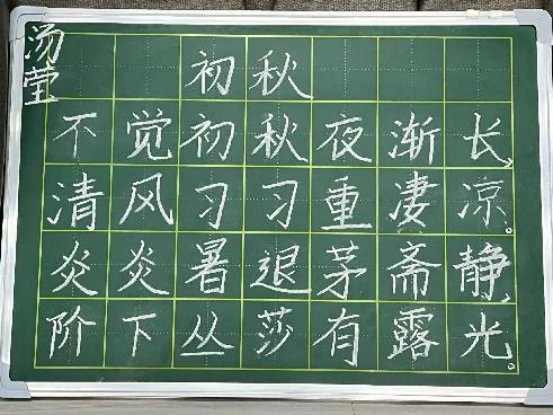 汤莹
初秋
不觉初秋夜渐长,
清风习习重凄凉。
炎炎暑退茅斋静,
阶下丛莎有露光。